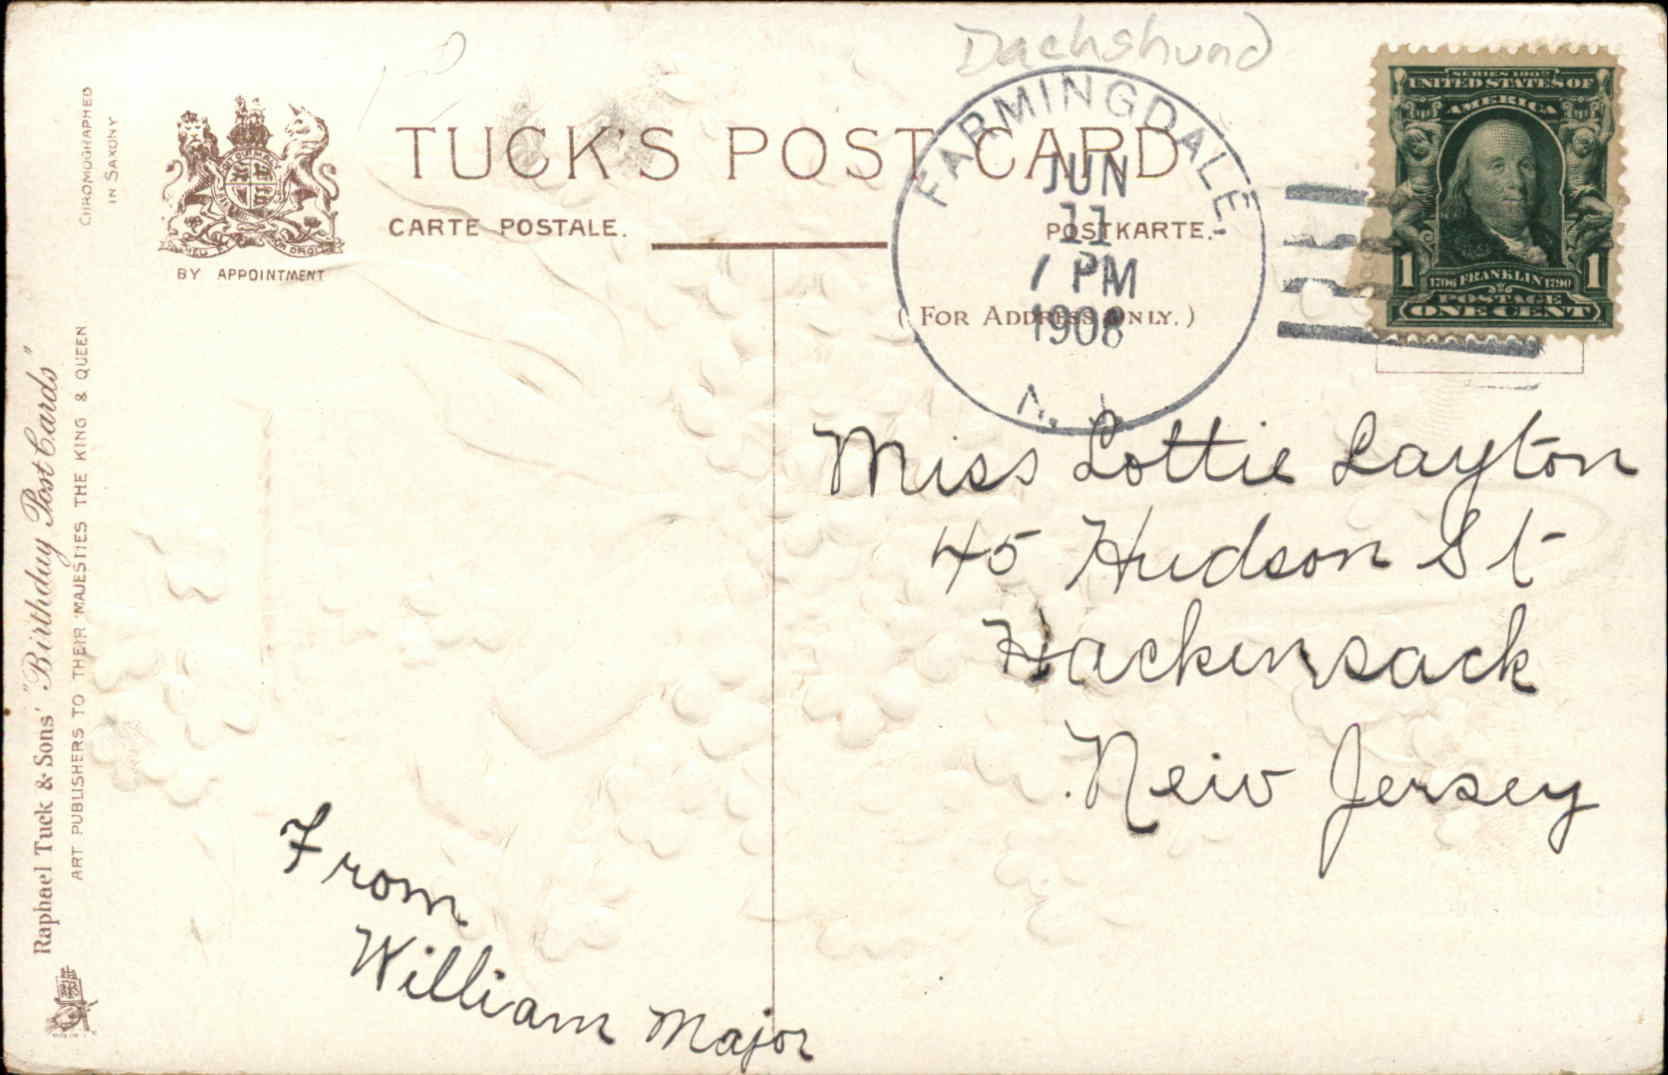 Dachshund
CHROMOGRAPHED
IN SAXONY
TUCK'S POST CARD
CARTE POSTALE.
POSTKARTE.
BY APPOINTMENT
(FOR ADDRESS ONLY.)
FARMINGDALE
JUN
11
1 PM
1908
N.J.
SERIES 1902
UNITED STATES OF
AMERICA
1
1706 FRANKLIN 1790
1
POSTAGE
ONE CENT
Raphael Tuck & Sons' "Birthday Post Cards"
ART PUBLISHERS TO THEIR MAJESTIES THE KING & QUEEN
Miss Lottie Layton
45 Hudson St
Hackensack
New Jersey
From
William Major